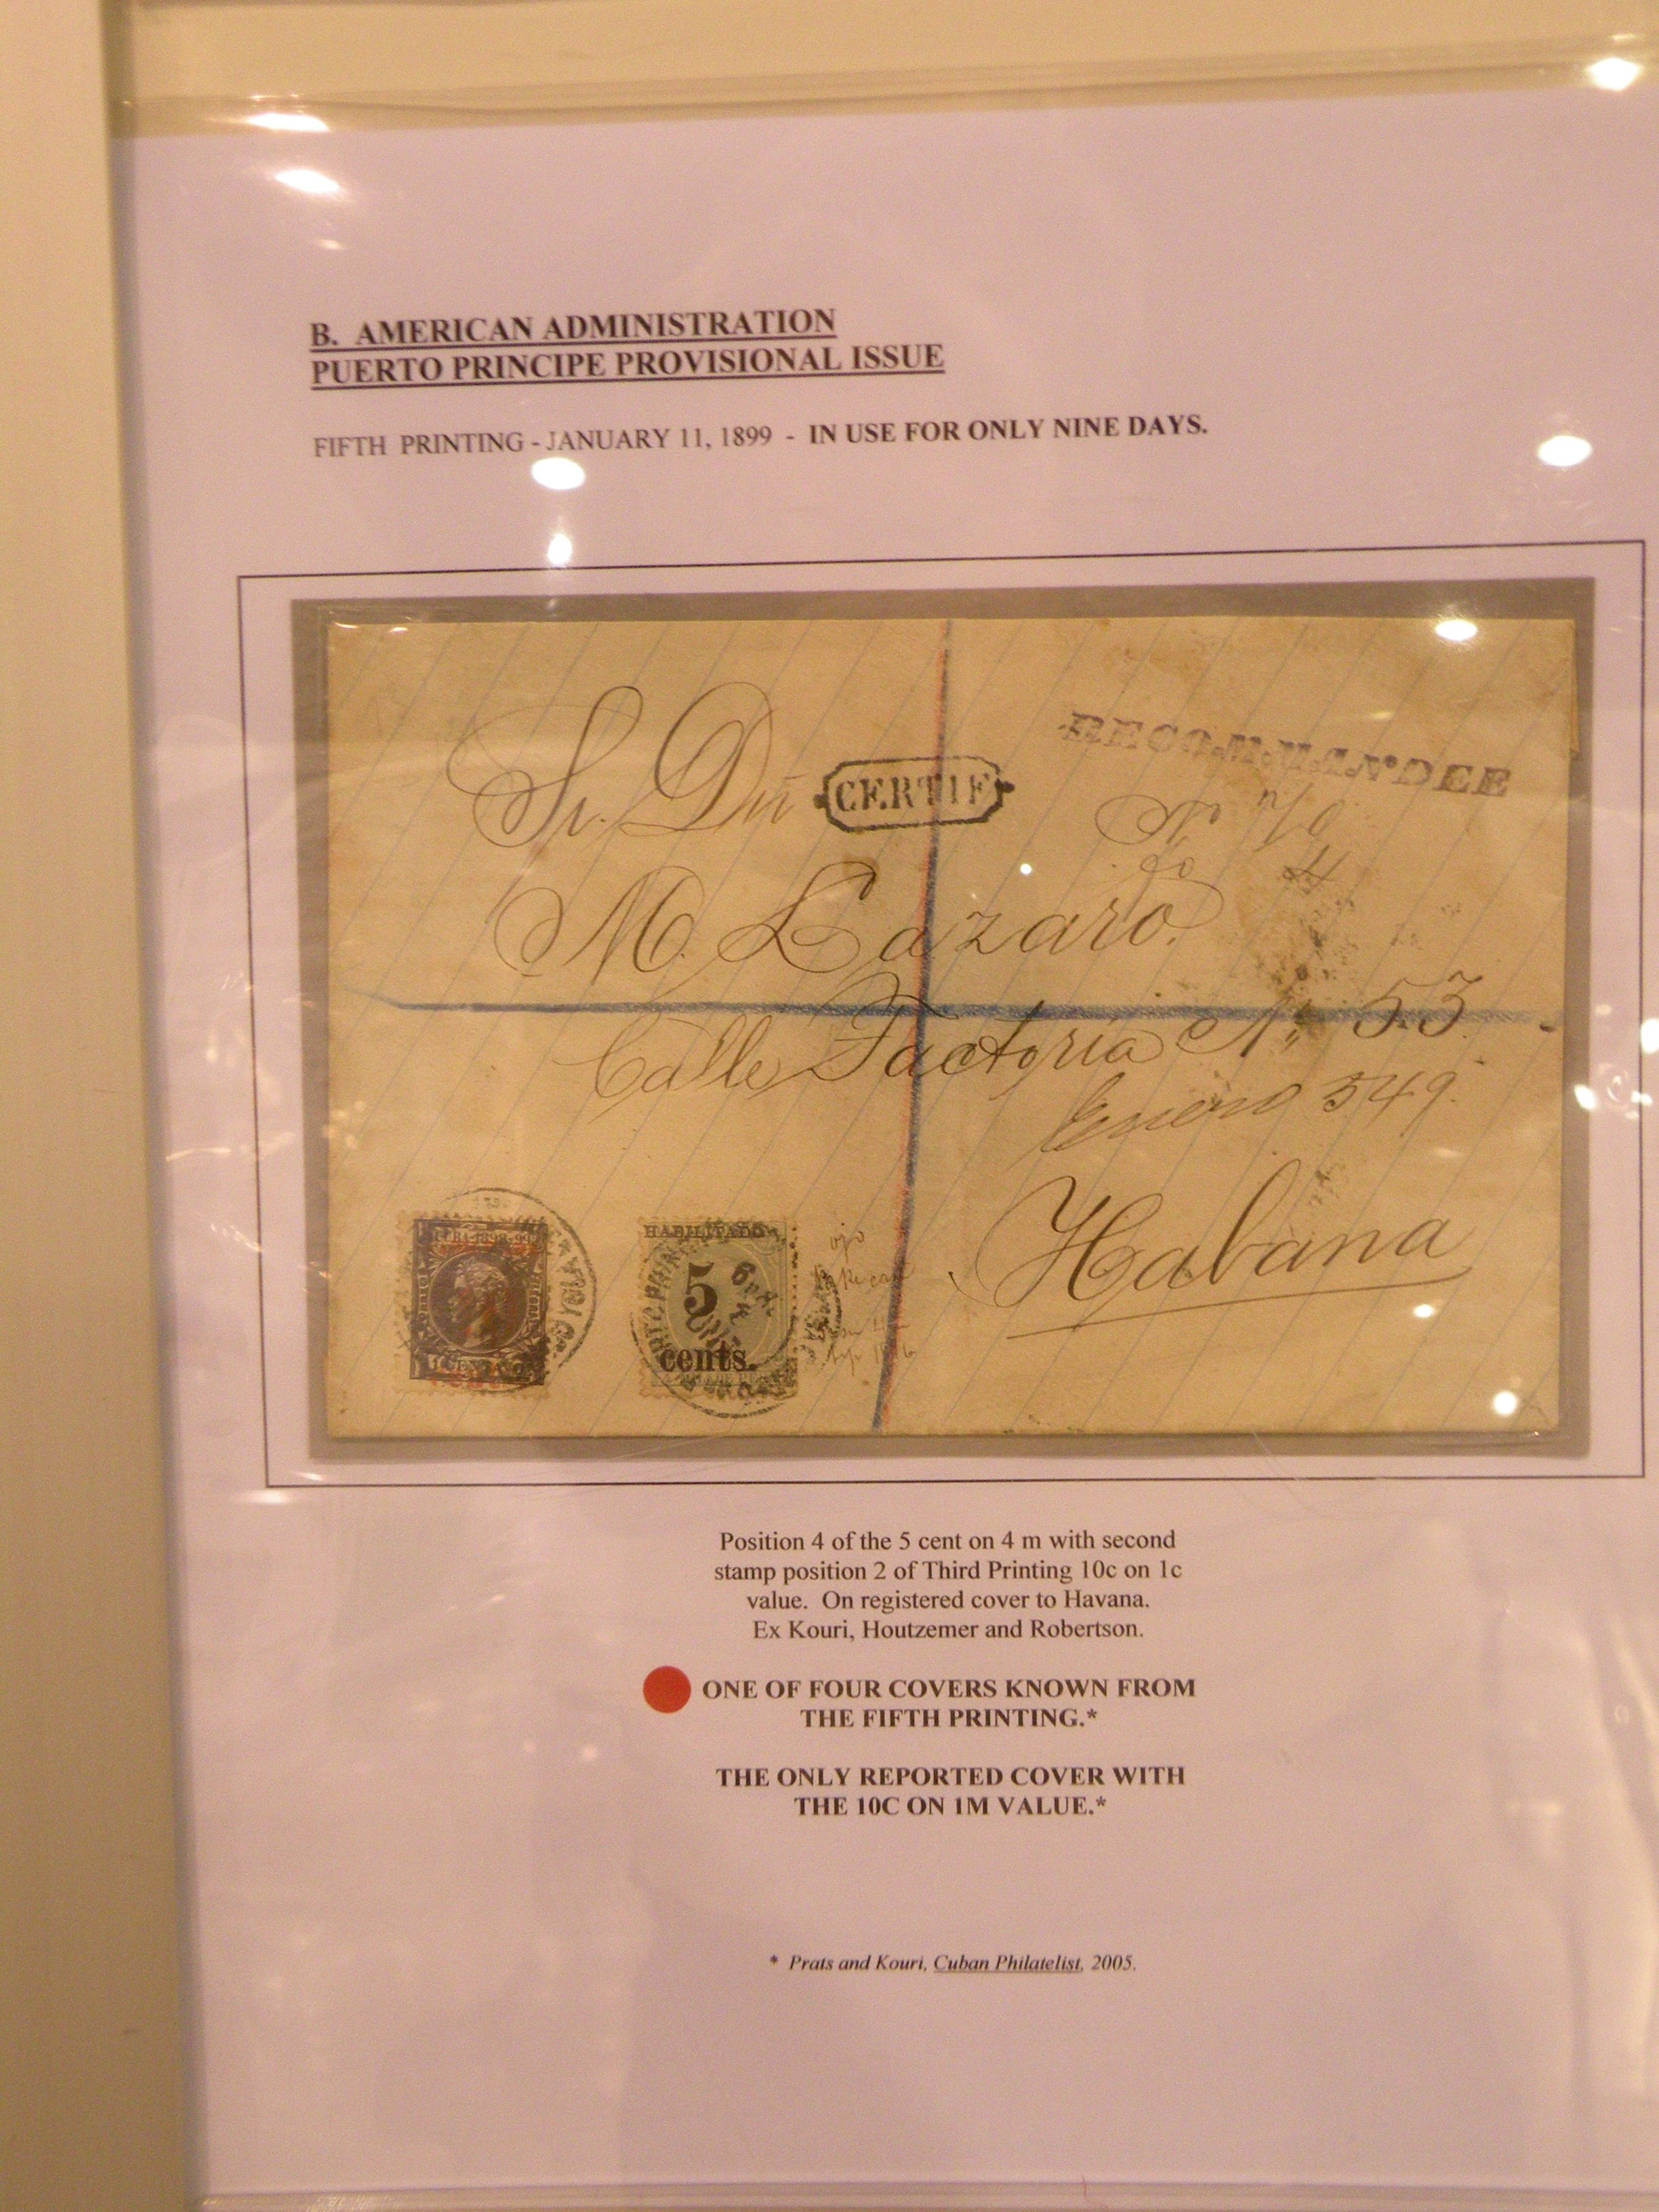 B. AMERICAN ADMINISTRATION
PUERTO PRINCIPE PROVISIONAL ISSUE
FIFTH PRINTING - JANUARY 11, 1899 - IN USE FOR ONLY NINE DAYS.
RECOMMANDEE
Sr. Dn
CERTIF
M. Lazaro.
Calle Factoria No 53.
Enero 549.
Habana
CUBA 1898-99
HABILITADO
5
cents.
Position 4 of the 5 cent on 4 m with second
stamp position 2 of Third Printing 10c on 1c
value. On registered cover to Havana.
Ex Kouri, Houtzemer and Robertson.
ONE OF FOUR COVERS KNOWN FROM
THE FIFTH PRINTING.*
THE ONLY REPORTED COVER WITH
THE 10C ON 1M VALUE.*
* Prats and Kouri, Cuban Philatelist, 2005.